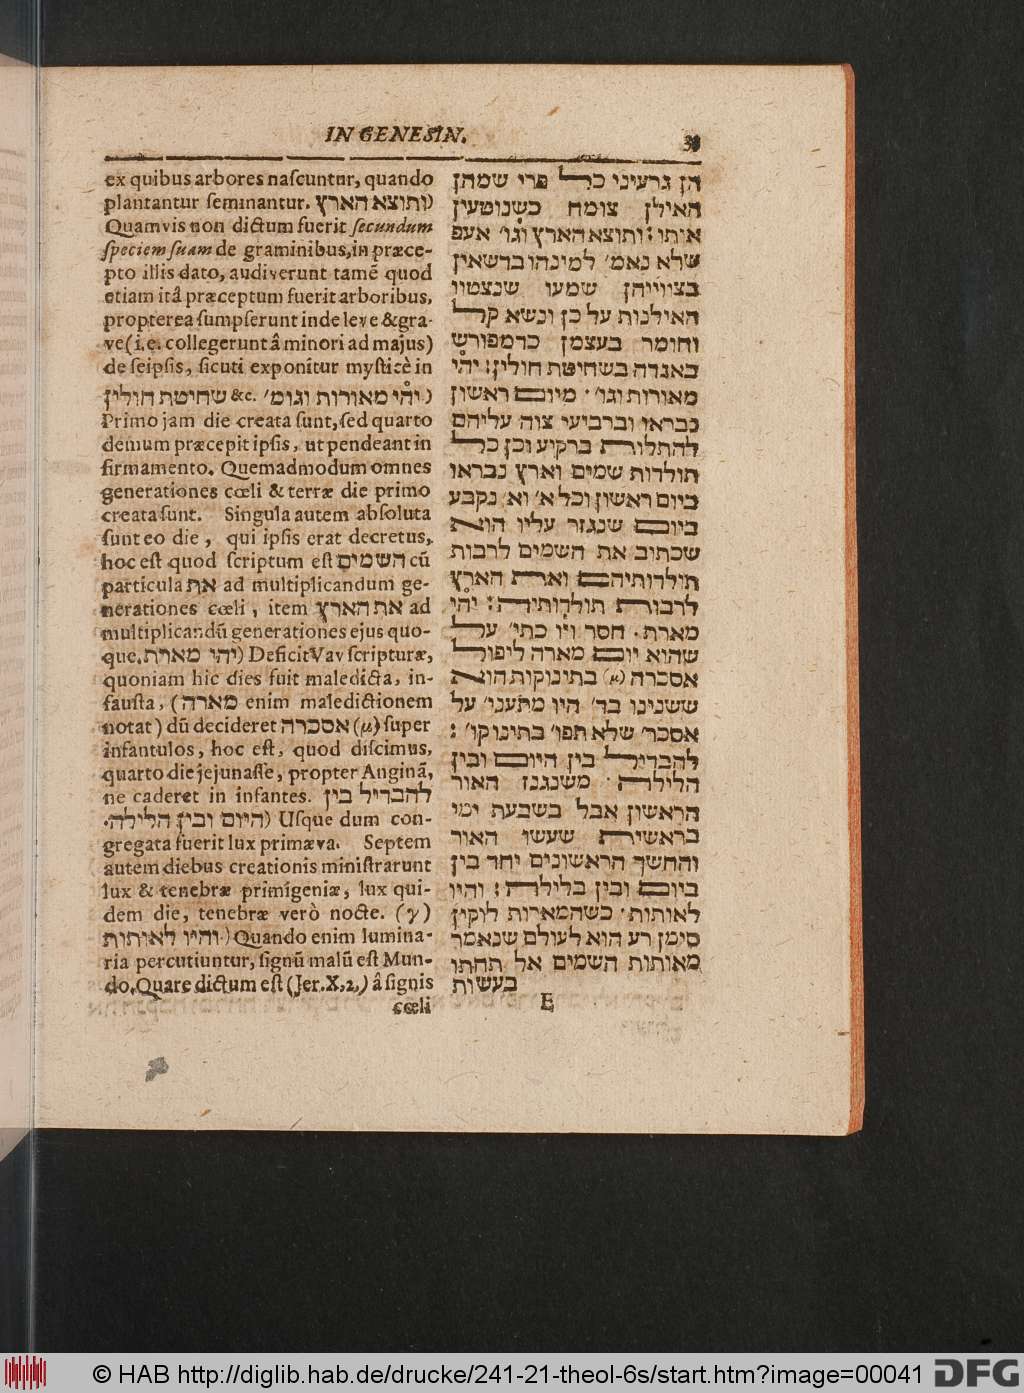 IN GENESIN.
ex quibus arbores naſcuntur, quando
plantantur ſeminantur. ותוצא הארץ)
Quamvis non dictum fuerit ſecundum
ſpeciem ſuam de graminibus, in præce-
pto illis dato, audiverunt tamẽ quod
etiam itâ præceptum fuerit arboribus,
propterea ſumpſerunt inde leve & gra-
ve (i.e. collegerunt â minori ad majus)
de ſeipſis, ſicuti exponitur myſticè in
שחיטת חולין &c. יהי מאורות וגומ׳)
Primo jam die creata ſunt, ſed quarto
demum præcepit ipſis, ut pendeant in
firmamento. Quemadmodum omnes
generationes cœli & terræ die primo
creata ſunt. Singula autem abſoluta
ſunt eo die, qui ipſis erat decretus,
hoc eſt quod ſcriptum eſt השמים cũ
particula את ad multiplicandum ge-
nerationes cœli, item את הארץ ad
multiplicandũ generationes ejus quo-
que. יהי מארת) Deficit Vav ſcripturæ,
quoniam hic dies fuit maledicta, in-
fauſta, (מארה enim maledictionem
notat) dũ decideret אסכרה (μ) ſuper
infantulos, hoc eſt, quod diſcimus,
quarto die jejunaſſe, propter Anginã,
ne caderet in infantes. להבדיל בין
היום ובין הלילה.) Uſque dum con-
gregata fuerit lux primæva. Septem
autem diebus creationis miniſtrarunt
lux & tenebræ primigeniæ, lux qui-
dem die, tenebræ verò nocte. (γ)
והיו לאותות) Quando enim lumina-
ria percutiuntur, ſignũ malũ eſt Mun-
do. Quare dictum eſt (Jer. X, 2,) â ſignis
cœli
הן גרעיני כל פרי שמהן
האילן צומח כשנוטעין
אותו: ותוצא הארץ וגו׳ אעפ
שלא נאמ׳ למינהו בדשאין
בצווייהן שמעו שנצטוו
האילנות על כן ונשא קל
וחומר בעצמן כדמפורש
באגדה בשחיטת חולין: יהי
מאורות וגו׳ מיום ראשון
נבראו וברביעי צוה עליהם
להתלות ברקיע וכן כל
תולדות שמים וארץ נבראו
ביום ראשון וכל א׳ וא׳ נקבע
ביום שנגזר עליו הוא
שכתוב את השמים לרבות
תולדותיהם ואת הארץ
לרבות תולדותיה: יהי
מארת. חסר ויו כתי׳ על
שהוא יום מארה ליפול
אסכרה (μ) בתינוקות הוא
ששנינו בד׳ היו מתעני׳ על
אסכר׳ שלא תפו׳ בתינוקו׳:
להבדיל בין היום ובין
הלילה משנגנז האור
הראשון אבל בשבעת ימי
בראשית שעשו האור
והחשך הראשונים יחד בין
ביום ובין בלילה: והיו
לאותות. כשהמארות לוקין
סימן רע הוא לעולם שנאמר
מאותות השמים אל תחתו
בעשות
E
© HAB http://diglib.hab.de/drucke/241-21-theol-6s/start.htm?image=00041
DFG